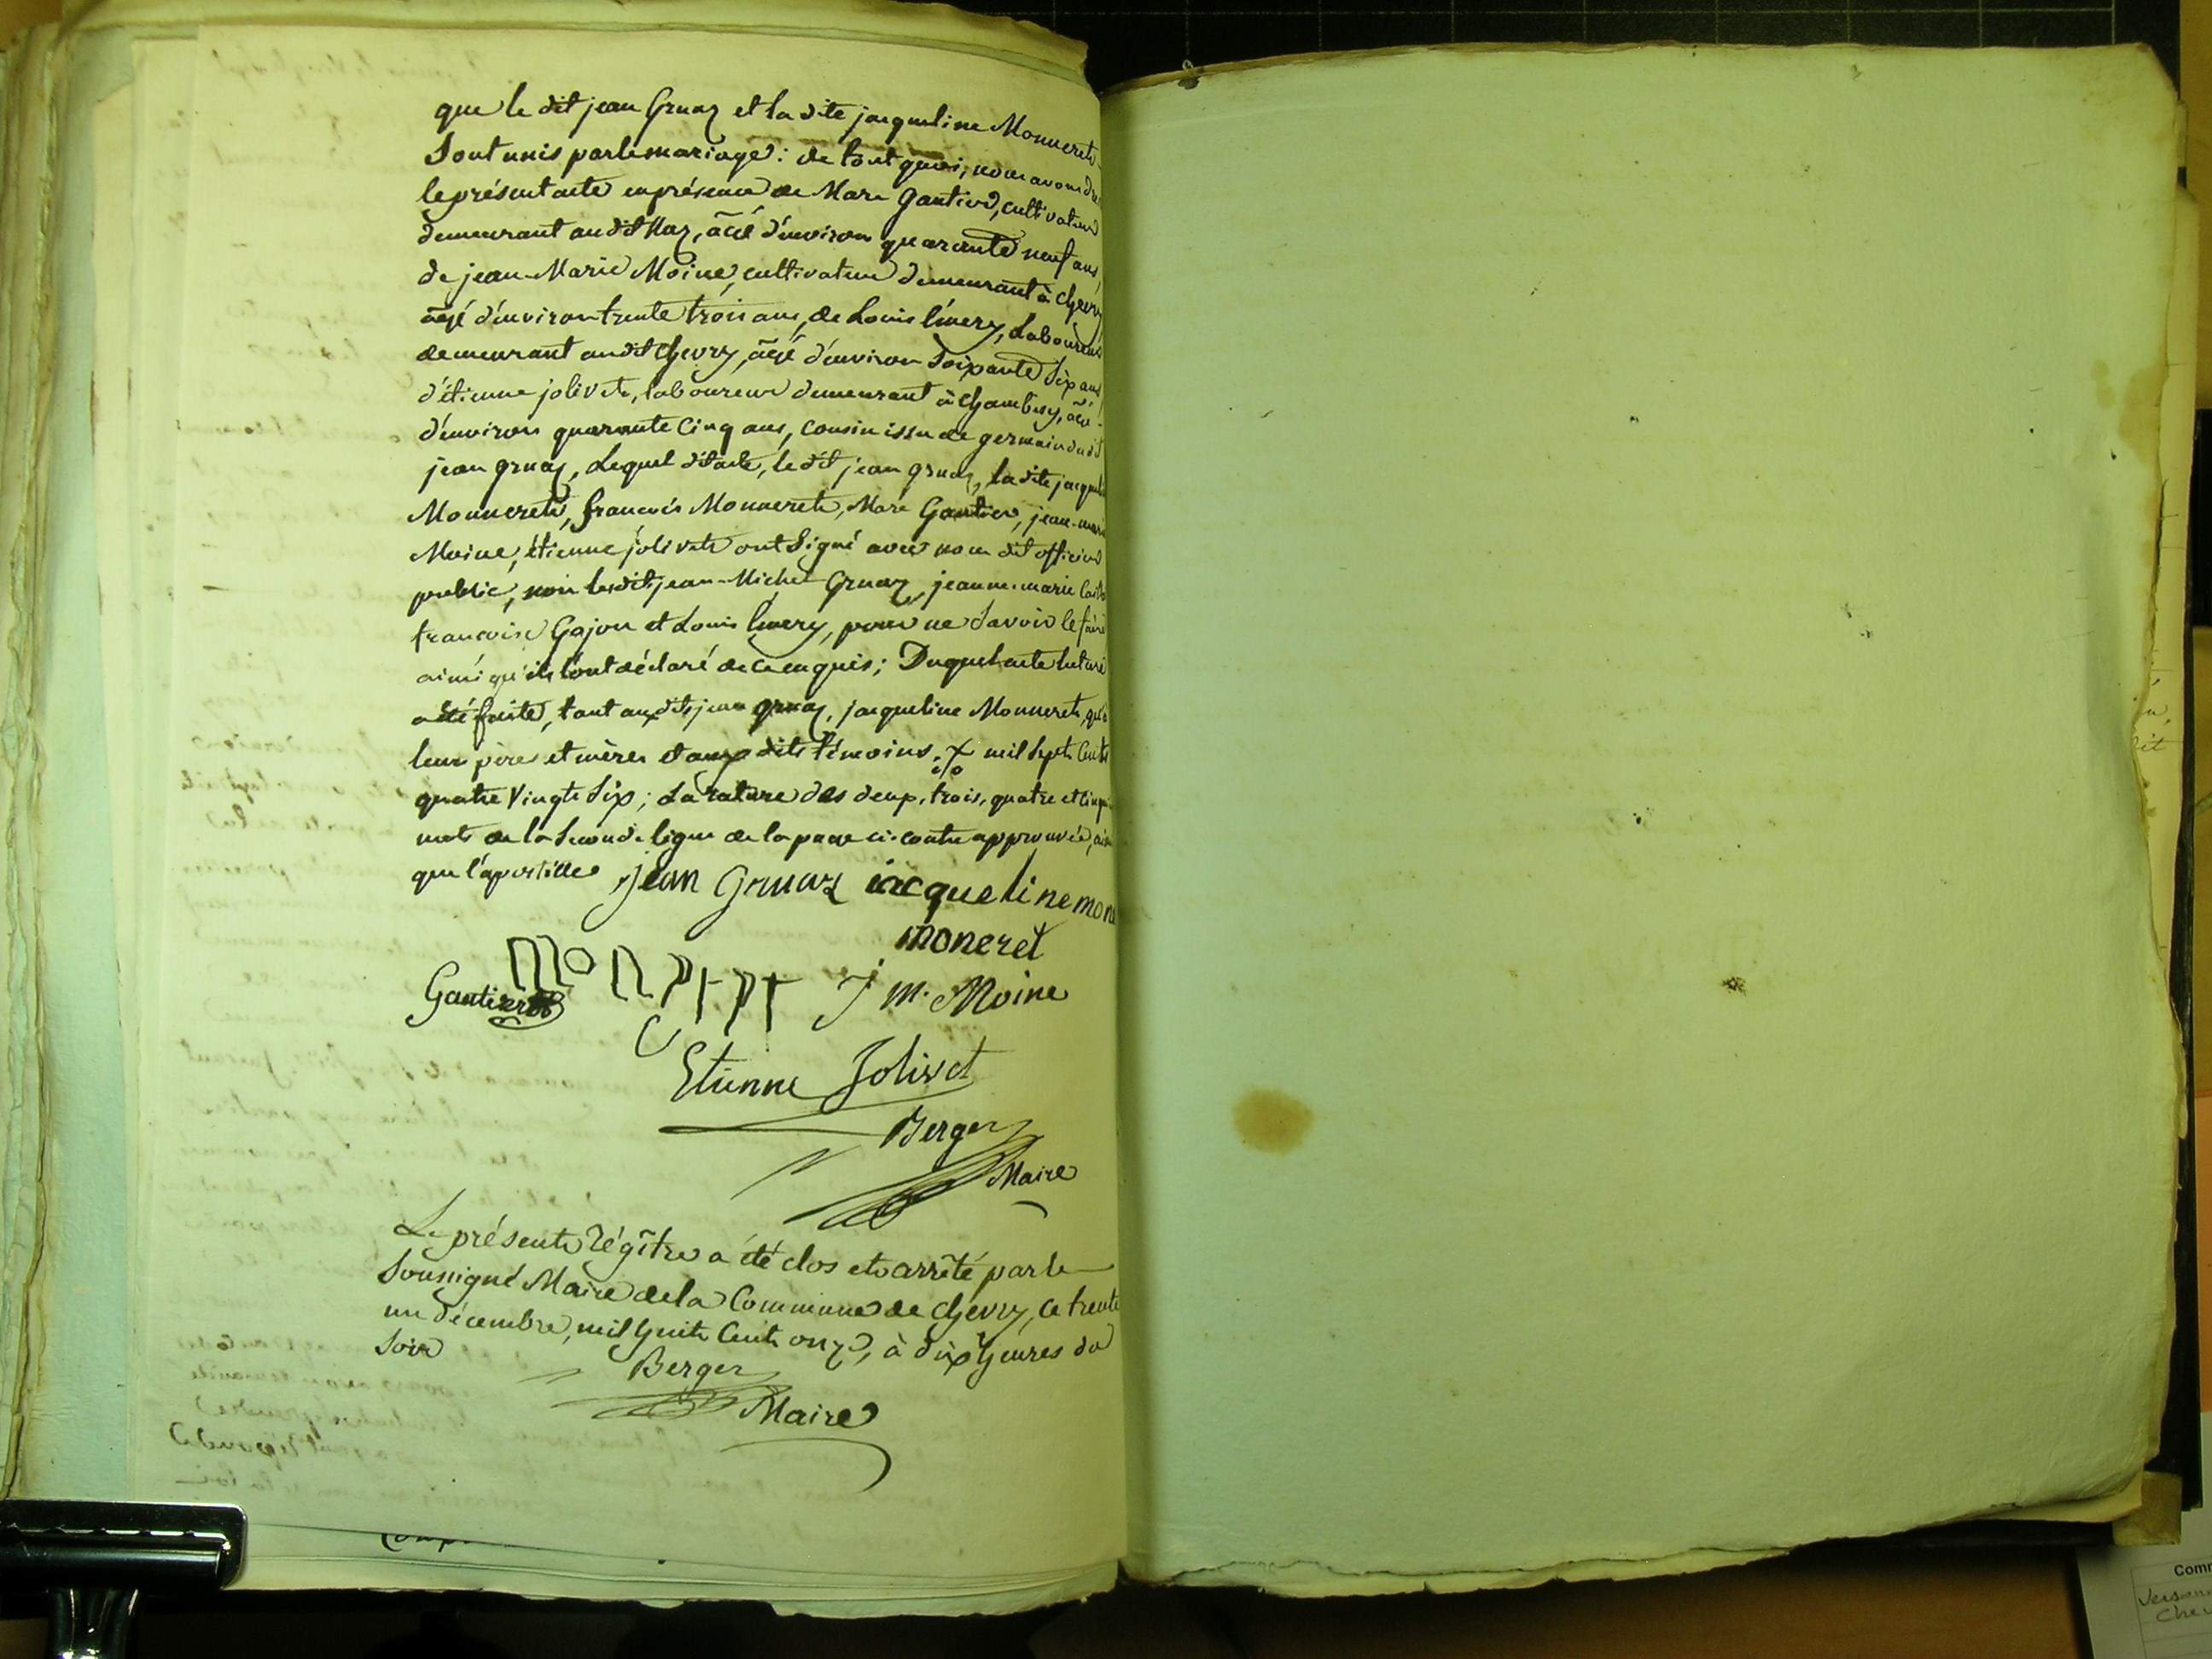 que le dit jean Gruaz et la dite jacqueline Monneret
Sont unis par le mariage : de tout quoi, nous avons
le présent acte en présence de Marc Gautier, cultivateur
demeurant audit Naz, âgé d'environ quarante neuf ans,
de jean-Marie Moine, cultivateur demeurant à Chevry
âgé d'environ trente trois ans, de Louis Émery, Laboureur
demeurant audit Chevry, âgé d'environ Soixante Six ans,
d'étienne jolivet, laboureur demeurant à Chambesy, âgé
d'environ quarante Cinq ans, cousin issu de germain dudit
jean gruaz, Lequel dit acte, le dit jean gruaz, la dite jacqueli
Monneret, françois Monneret, Marc Gautier, jean-marie
Moine, étienne jolivet ont Signé avec nous dit officier
public, non lesdits jean-Michel Gruaz, jeanne-marie
françoise Gojon et Louis Émery, pour ne Savoir le faire
ainsi qu'ils l'ont déclaré de ce enquis ; Duquel acte lecture
a été faite, tant auxdits jean gruaz, jacqueline Monneret, qu'à
leur père et mères et aux dits témoins. x mil Sept Cent
quatre Vingt Six ; La rature des deux, trois, quatre et cinq
mots de la Seconde ligne de la page ci-contre approuvée, ainsi
que l'apostille jean Gruaz iacqueline mone
moneret
Gautier moneret J m. Moine
Etienne Jolivet
Berger
Maire
Le présent Régître a été clos et arrêté par le
Soussigné Maire de la Commune de Chevry, Ce trente
un décembre, mil huit Cent onze, à dix heures du
Soir
Berger
Maire
Comp
Comm
Verson
Chev